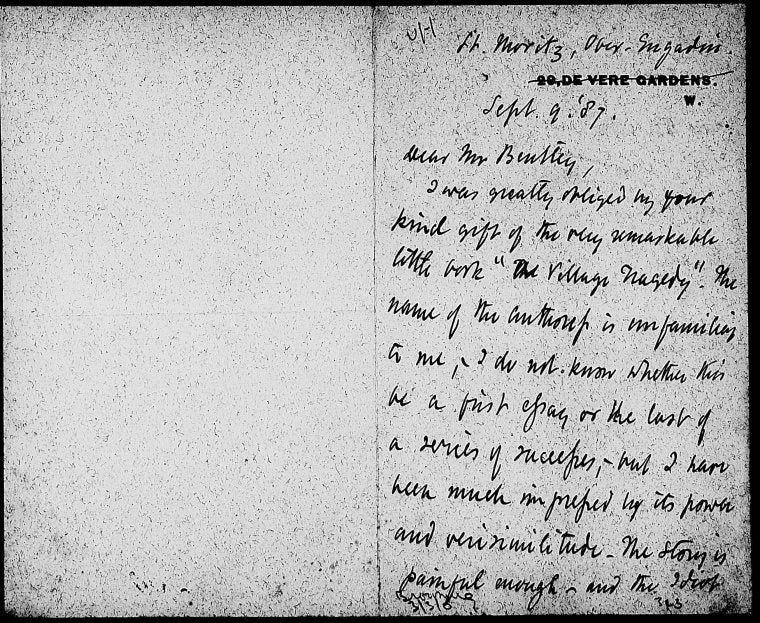 St. Moritz, Over-Engadin.
29, DE VERE GARDENS.
W.
Sept. 9. '87.
Dear Mr Bentley,
I was greatly obliged by your
kind gift of the very remarkable
little book "The Village Tragedy". The
name of the authoress is unfamiliar
to me,- I do not know whether this
be a first essay or the last of
a series of successes,- but I have
been much impressed by its power
and verisimilitude. The story is
painful enough - and the Idiot
Browning